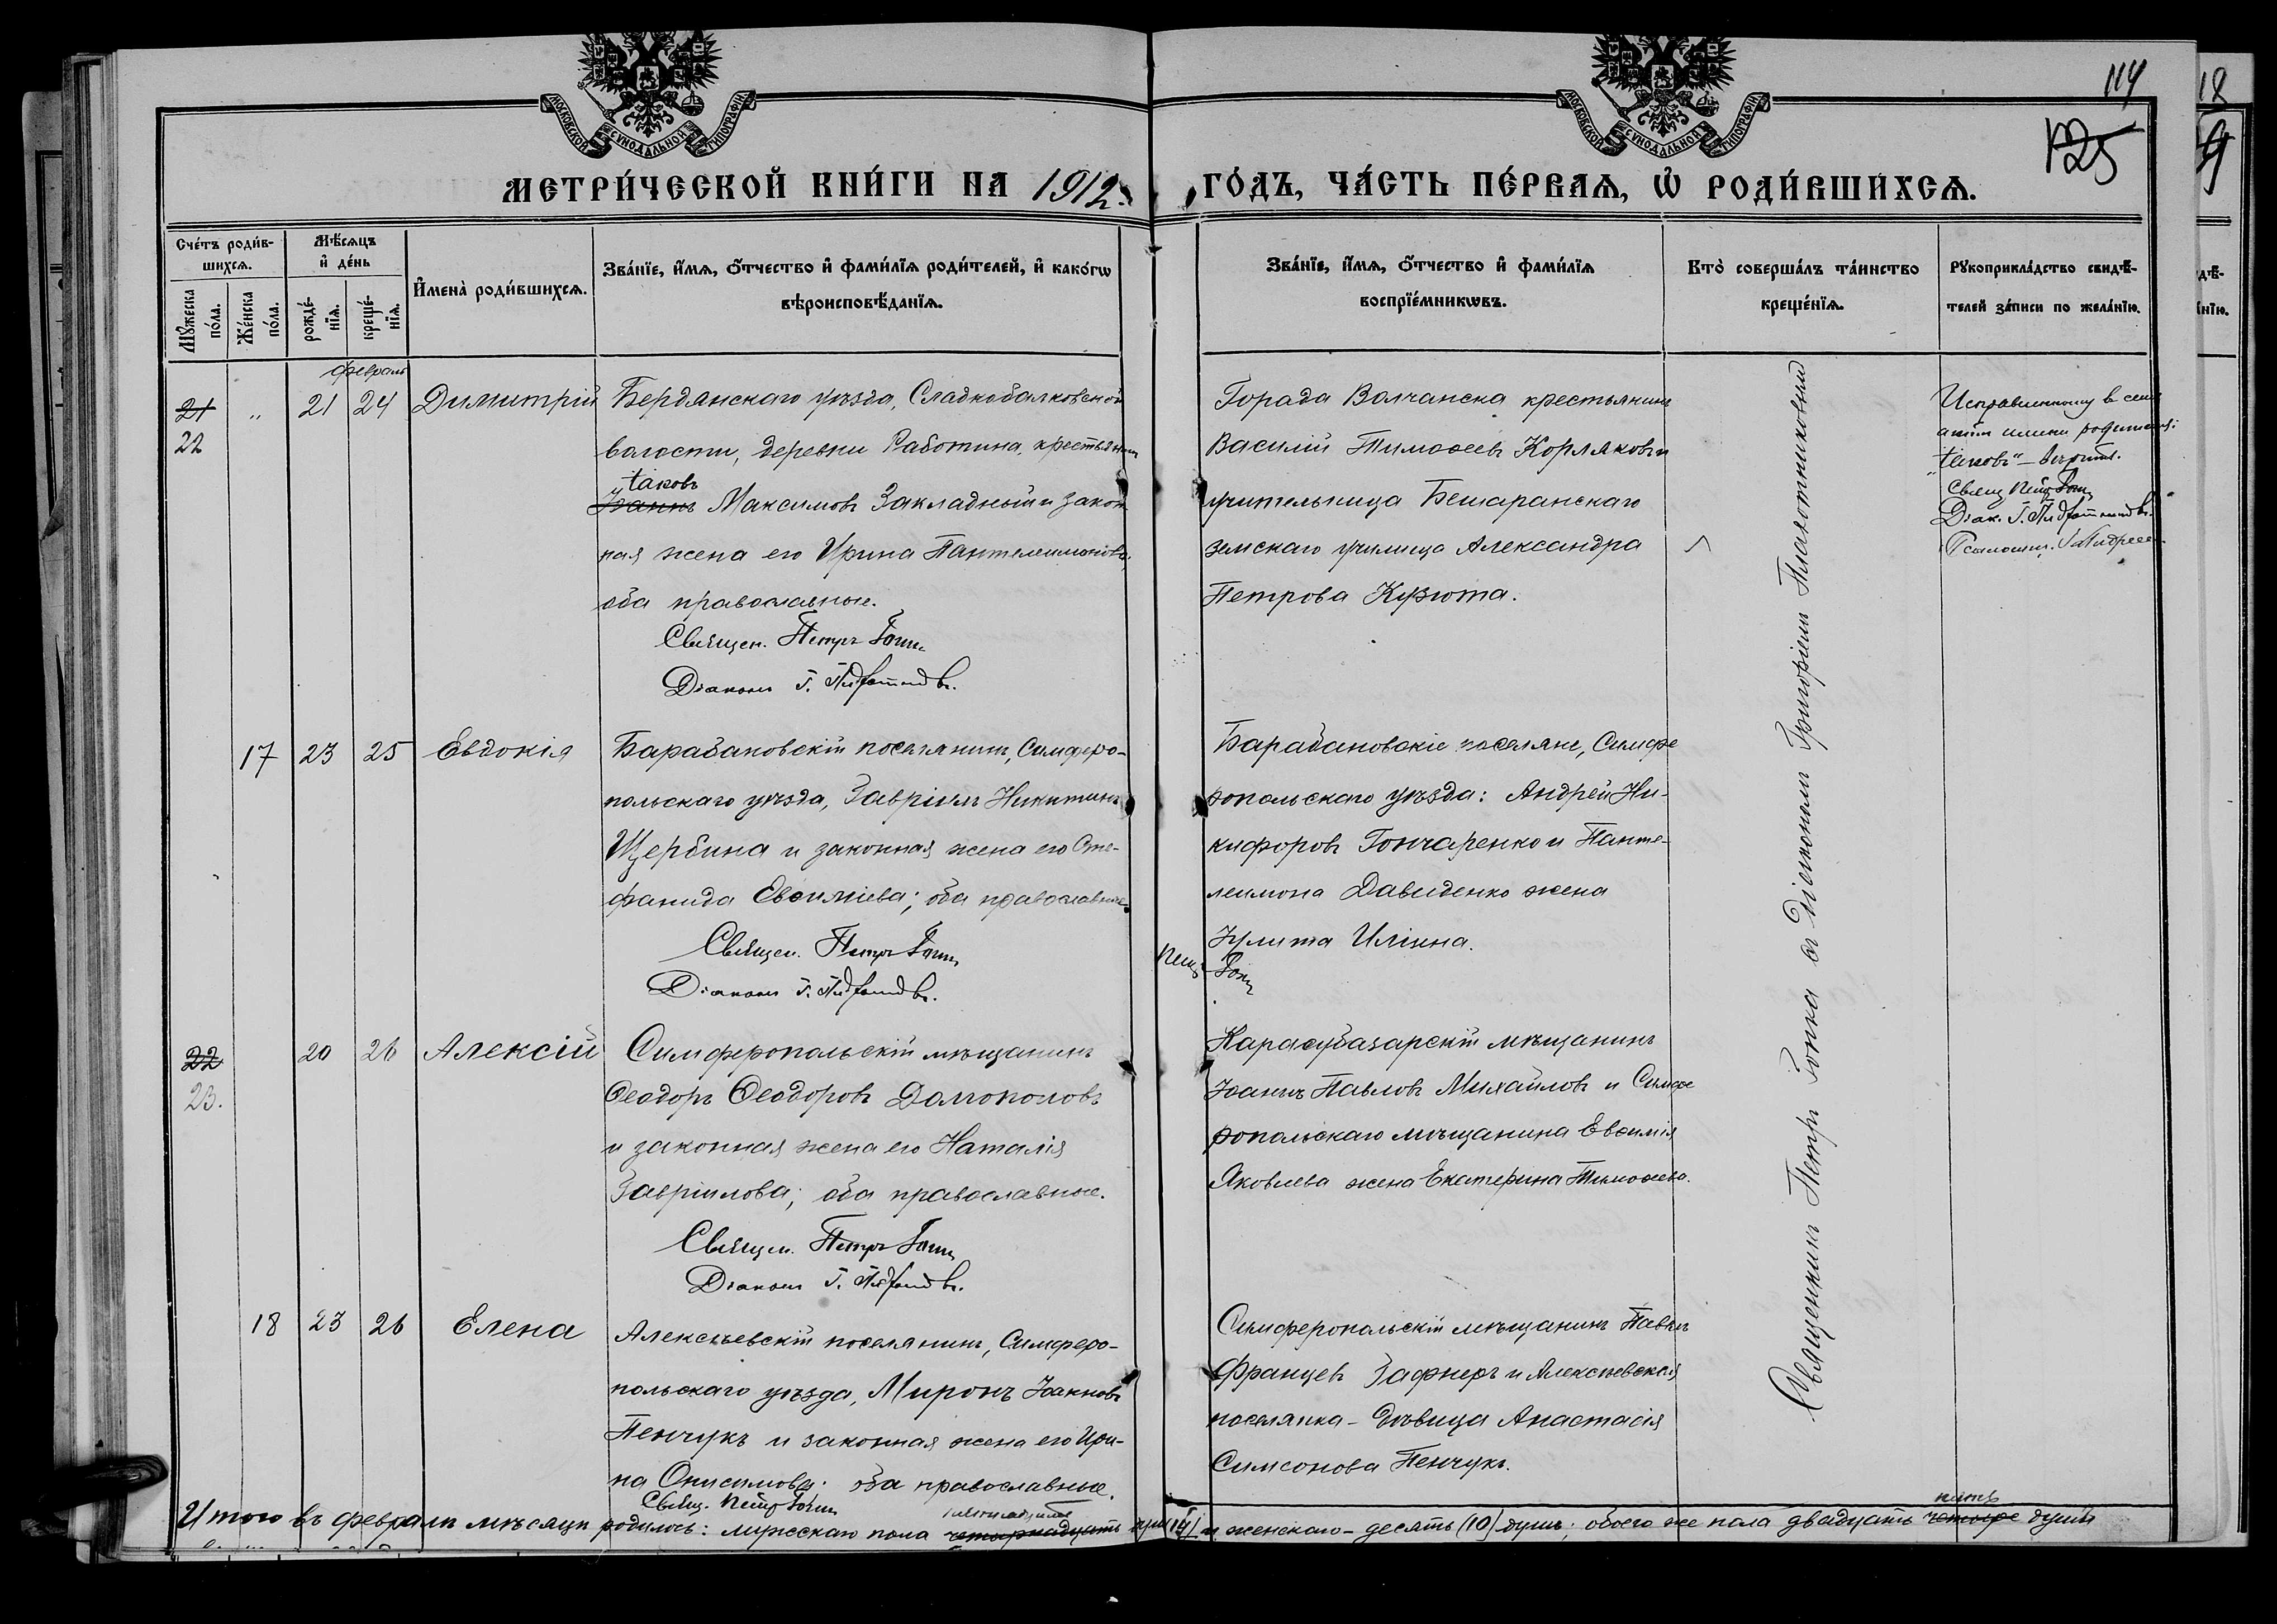 114
18
125
МОСКОВСКОЙ СУНОДАЛЬНОЙ ТИПОГРАФІИ
МОСКОВСКОЙ СУНОДАЛЬНОЙ ТИПОГРАФІИ
МЕТРИ́ЧЕСКОЙ КНИ́ГИ НА 1912
ГО́ДЪ, ЧА́СТЬ ПЕ́РВАѦ, Ѡ҆ РОДИ́ВШИХСѦ.
Сче́тъ роди́в-
шихсѧ.
Мꙋжеска
по́ла.
Же́нска
по́ла.
Мѣ́сѧцъ
и҆ де́нь
рожде́-
нїѧ.
креще́-
нїѧ.
И҆мена̀ роди́вшихсѧ.
Зва́нїе, и҆́мѧ, ѻ҆́тчество и҆ фами́лїѧ роди́телей, и҆ како́гѡ
вѣроисповѣ́данїѧ.
Зва́нїе, и҆́мѧ, ѻ҆́тчество и҆ фами́лїѧ
воспрїе́мникѡвъ.
Кто̀ соверша́лъ та́инство
креще́нїѧ.
Рꙋкоприкла́дство свидѣ́-
телей за́писи по жела́нїю.
февраль
21 „ 21 24 Димитрій
22
Бердянскаго уѣзда, Сладкобалковской
волости, деревни Работина, крестьянинъ
Іаковъ
Іоаннъ Максимовъ Закладный и закон
ная жена его Ирина Пантелеимонова,
оба православные.
Священ. Петръ
Діаконъ Г.
Города Волчанска крестьянинъ
Василій Тимоѳеевъ Корляковъ и
учительница Бешаранскаго
земскаго училища Александра
Петрова Кузюта.
Исправленному в сей
имени родителя:
„Іаковъ" – вѣрить.
Свящ. Петръ
Діак. Г.
Псаломщ.
17 23 25 Евдокія
Барабановскій поселянинъ, Симферо-
польскаго уѣзда, Гавріилъ Никитинъ
Щербина и законная жена его Сте-
фанида Евѳиміева; оба православные.
Священ. Петръ
Діаконъ Г.
Барабановскіе поселяне, Симфе
ропольскаго уѣзда: Андрей Ни-
кифоровъ Гончаренко и Панте-
леимона Давиденко жена
Іулита Иліина.
22 20 26 Алексій
23.
Симферопольскій мѣщанинъ
Ѳеодоръ Ѳеодоровъ Долгополовъ
и законная жена его Наталія
Гавріилова; оба православные.
Священ. Петръ
Діаконъ Г.
Карасубазарскій мѣщанинъ
Іоаннъ Павловъ Михайловъ и Симфе
ропольскаго мѣщанина Евѳимія
Яковлева жена Екатерина Тимоѳеева.
18 23 26 Елена
Алексѣевскій поселянинъ, Симферо-
польскаго уѣзда, Миронъ Іоанновъ
Пенчукъ и законная жена его Ири-
на Онисимова; оба православные.
Свящ. Петръ
Симферопольскій мѣщанинъ Павелъ
Францевъ Гафнеръ и Алексѣевская
поселянка – дѣвица Анастасія
Симсонова Пенчукъ.
Священникъ Петръ съ Діакономъ Григоріемъ
пятнадцать
пять
Итого въ февралѣ мѣсяцѣ родилось: мужскаго пола четырнадцать и женскаго – десять (10) душъ; обоего же пола двадцать четыре души